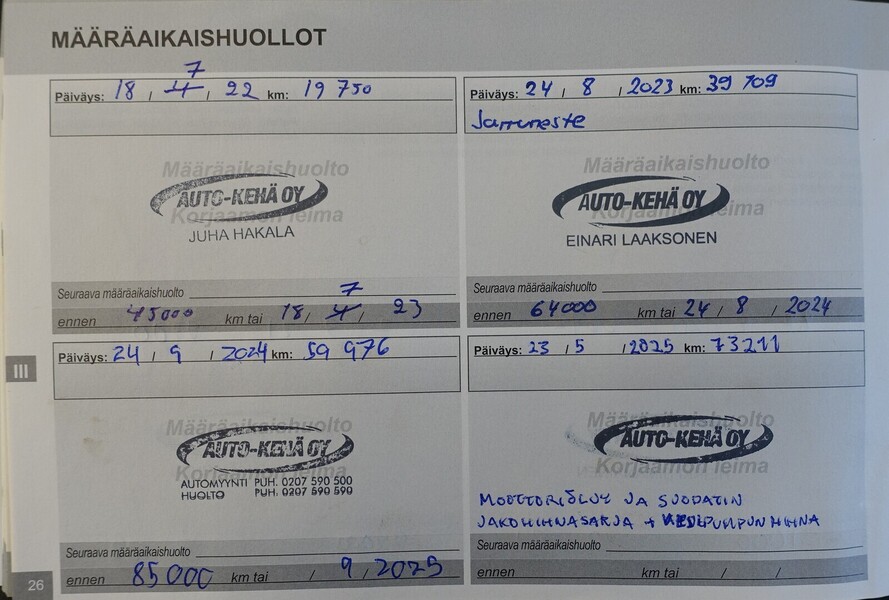 MÄÄRÄAIKAISHUOLLOT
7
Päiväys: 18 / 4 / 22 km: 19 750
Määräaikaishuolto
AUTO-KEHÄ OY
Korjaamon leima
JUHA HAKALA
Seuraava määräaikaishuolto
7
ennen 45000 km tai 18 / 4 / 23
Päiväys: 24 / 8 / 2023 km: 39 709
Jarruneste
Määräaikaishuolto
AUTO-KEHÄ OY
Korjaamon leima
EINARI LAAKSONEN
Seuraava määräaikaishuolto
ennen 64000 km tai 24 / 8 / 2024
Päiväys: 24 / 9 / 2024 km: 59 976
Määräaikaishuolto
AUTO-KEHÄ OY
AUTOMYYNTI PUH. 0207 590 500
HUOLTO PUH. 0207 590 590
Seuraava määräaikaishuolto
ennen 85000 km tai / 9 / 2025
Päiväys: 23 / 5 / 2025 km: 73211
Määräaikaishuolto
AUTO-KEHÄ OY
Korjaamon leima
MOOTTORIÖLJY JA SUODATIN
JAKOHIHNASARJA + VESIPUMPUN HIHNA
Seuraava määräaikaishuolto
ennen km tai / /
III
26